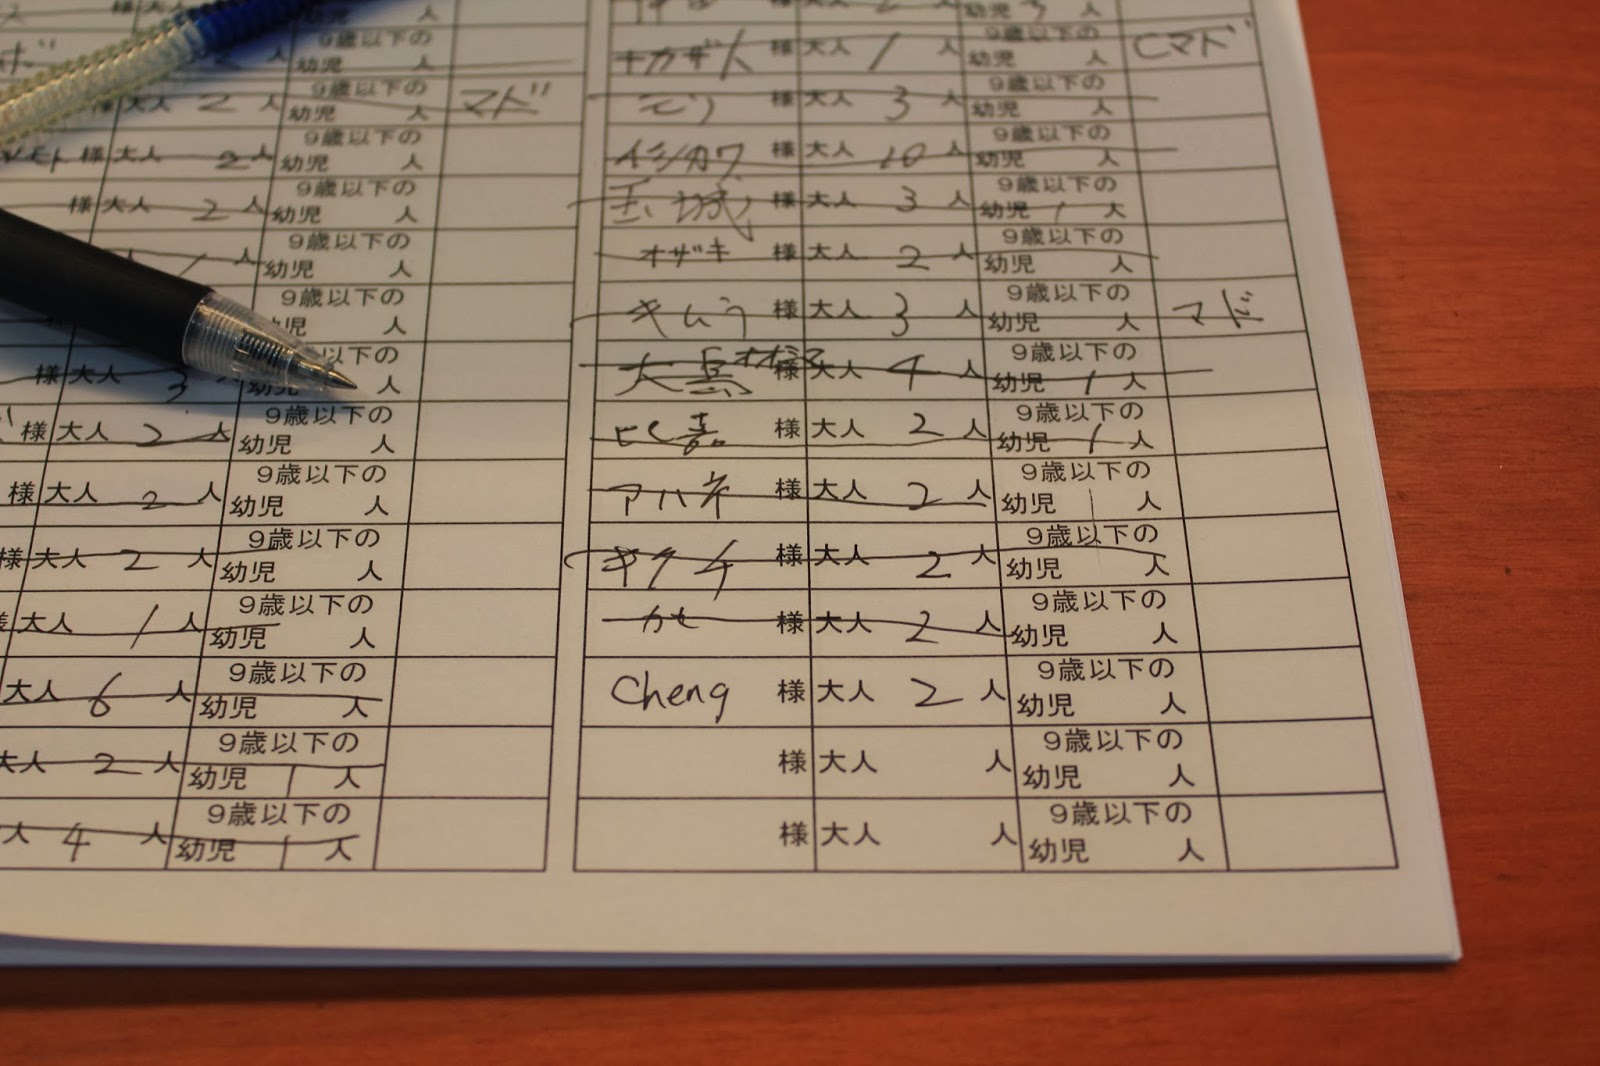 様 大人
9歳以下の
幼児 人
様 大人 2 人
9歳以下の
幼児 人
マド
様 大人 2 人
9歳以下の
幼児 人
様 大人 2 人
9歳以下の
幼児 人
人
9歳以下の
幼児 人
9歳以下の
人
様 大人 3
人
様 大人 2 人
9歳以下の
幼児 人
様 大人 2 人
9歳以下の
幼児 人
様 大人 2 人
9歳以下の
幼児 人
大人 1 人
9歳以下の
幼児 人
大人 6 人
9歳以下の
幼児 人
大人 2 人
9歳以下の
幼児 1 人
人 4 人
9歳以下の
幼児 1 人
幼児 3 人
様 大人 1 人
9歳以下の
幼児 人
Cマド
様 大人 3 人
9歳以下の
幼児 人
イシカワ 様 大人 10 人
9歳以下の
幼児 人
玉城 様 大人 3 人
9歳以下の
幼児 1 人
オザキ 様 大人 2 人
9歳以下の
幼児 人
キムラ 様 大人 3 人
9歳以下の
幼児 人
マド
様 大人 4 人
9歳以下の
幼児 1 人
比嘉 様 大人 2 人
9歳以下の
幼児 1 人
アハネ 様 大人 2 人
9歳以下の
幼児 人
キクチ 様 大人 2 人
9歳以下の
幼児 人
様 大人 2 人
9歳以下の
幼児 人
Cheng 様 大人 2 人
9歳以下の
幼児 人
様 大人 人
9歳以下の
幼児 人
様 大人 人
9歳以下の
幼児 人